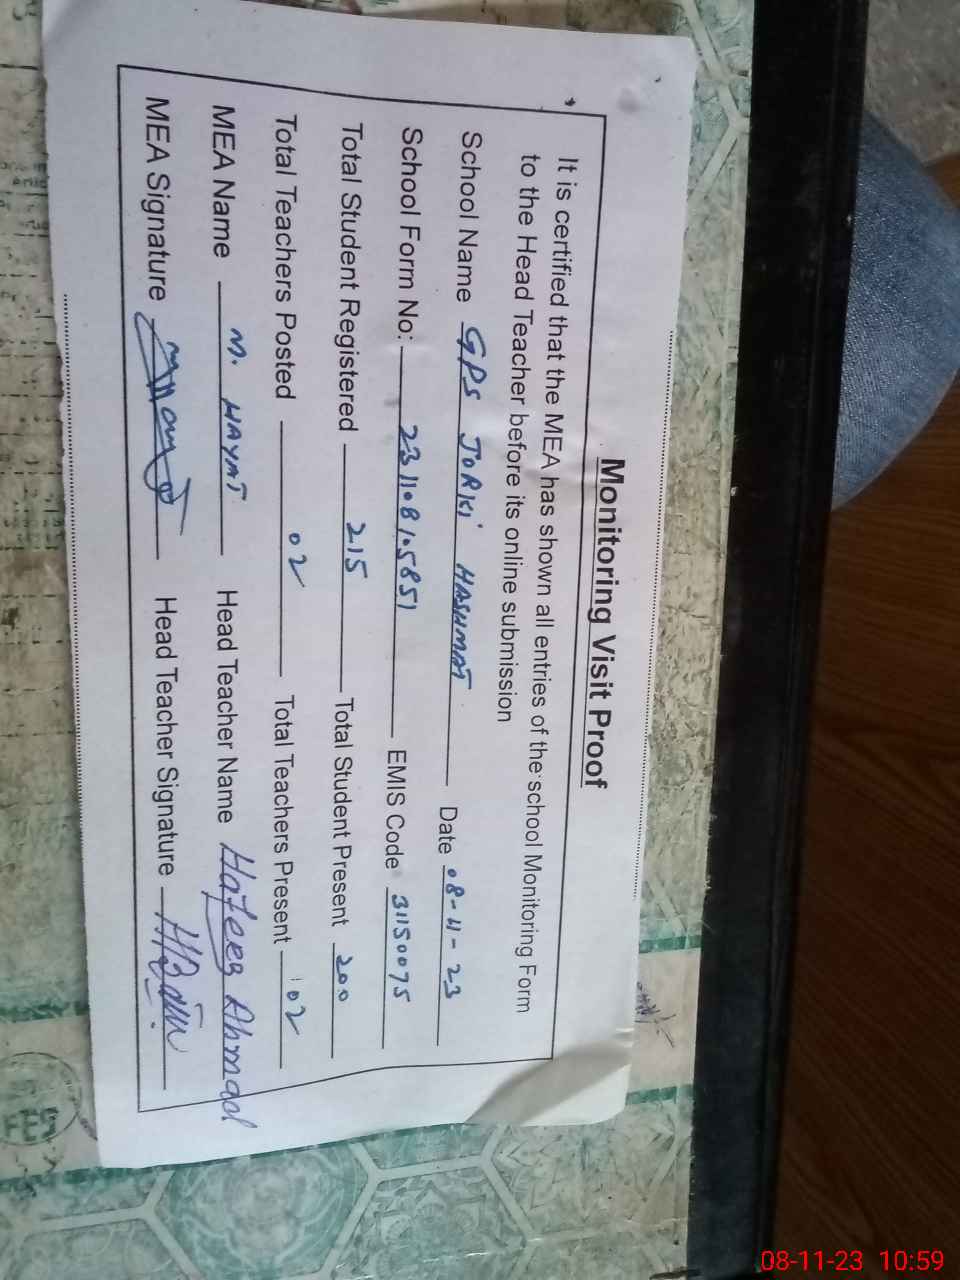 Monitoring Visit Proof
It is certified that the MEA has shown all entries of the school Monitoring Form
to the Head Teacher before its online submission
School Name GPS JORKI HASHMAT Date 08-11-23
School Form No: 231108105851 EMIS Code 31150075
Total Student Registered 215 Total Student Present 200
Total Teachers Posted 02 Total Teachers Present 02
MEA Name M. HAYAT Head Teacher Name Hafeez Ahmad
MEA Signature Head Teacher Signature
08-11-23 10:59